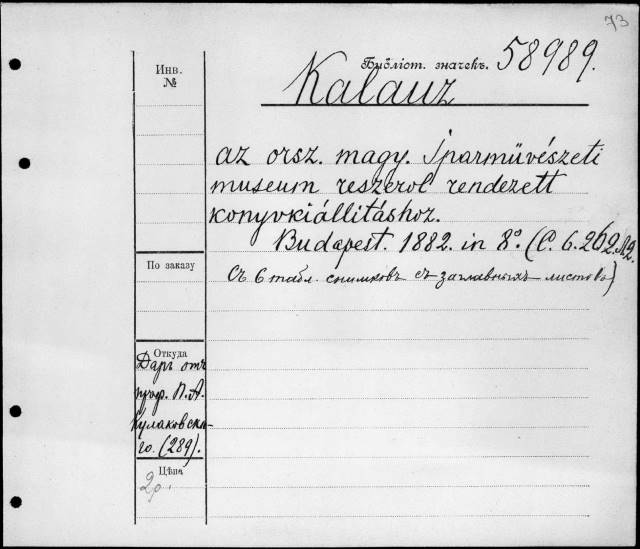 73
Инв. №
Библіот. значекъ. 58989.
Kalauz
az orsz. magy. Iparmüvészeti
museum reszerol rendezett
konyvkiállitáshoz.
Budapest. 1882. in 8º. (C. 6. 262.
По заказу
съ 6 табл. снимковъ съ заглавныхъ листовъ)
Откуда
Даръ отъ
проф. П. А.
Кулаковска-
го. (289).
Цѣна
2р.